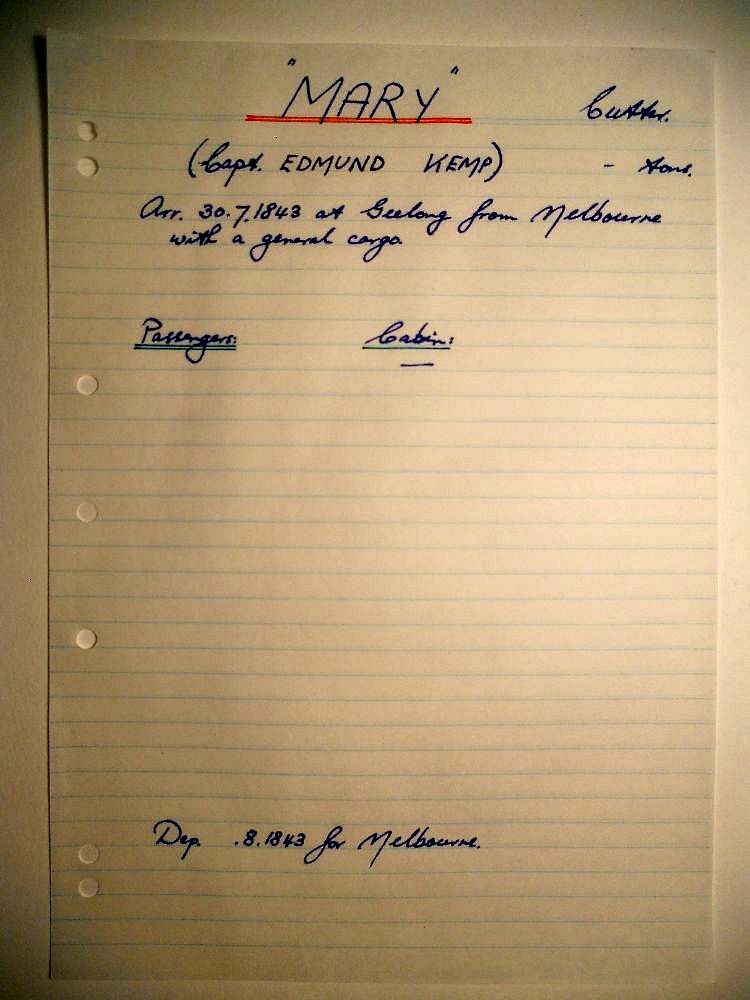 "MARY"
Cutter.
(Capt. EDMUND KEMP)
- tons.
Arr. 30.7.1843 at Geelong from Melbourne
with a general cargo.
Passengers:
Cabin:
—
Dep. .8.1843 for Melbourne.